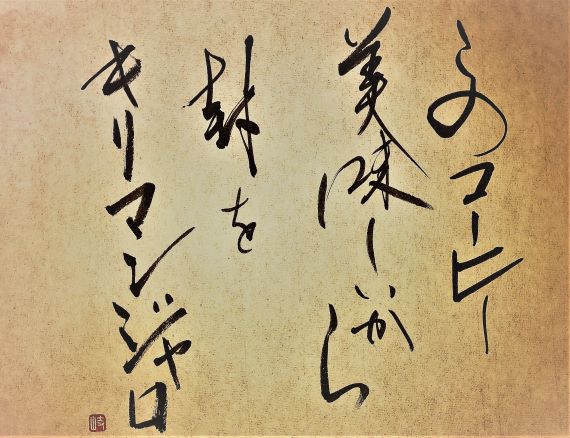 このコーヒー
美味しいから
封を
キリマンジャロ